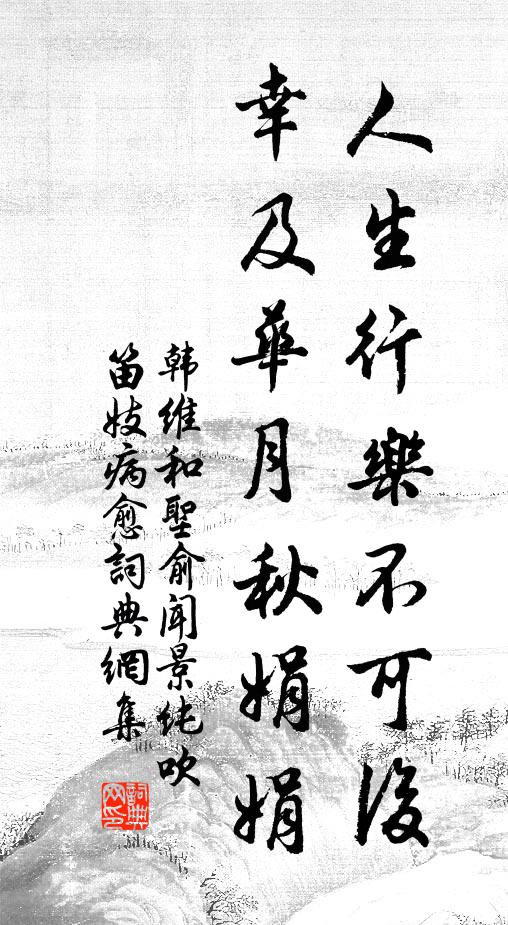 人生行樂不可後
幸及華月秋娟娟
韩維和聖俞闻景纯吹
笛妓病愈詞典網集
詞典网印